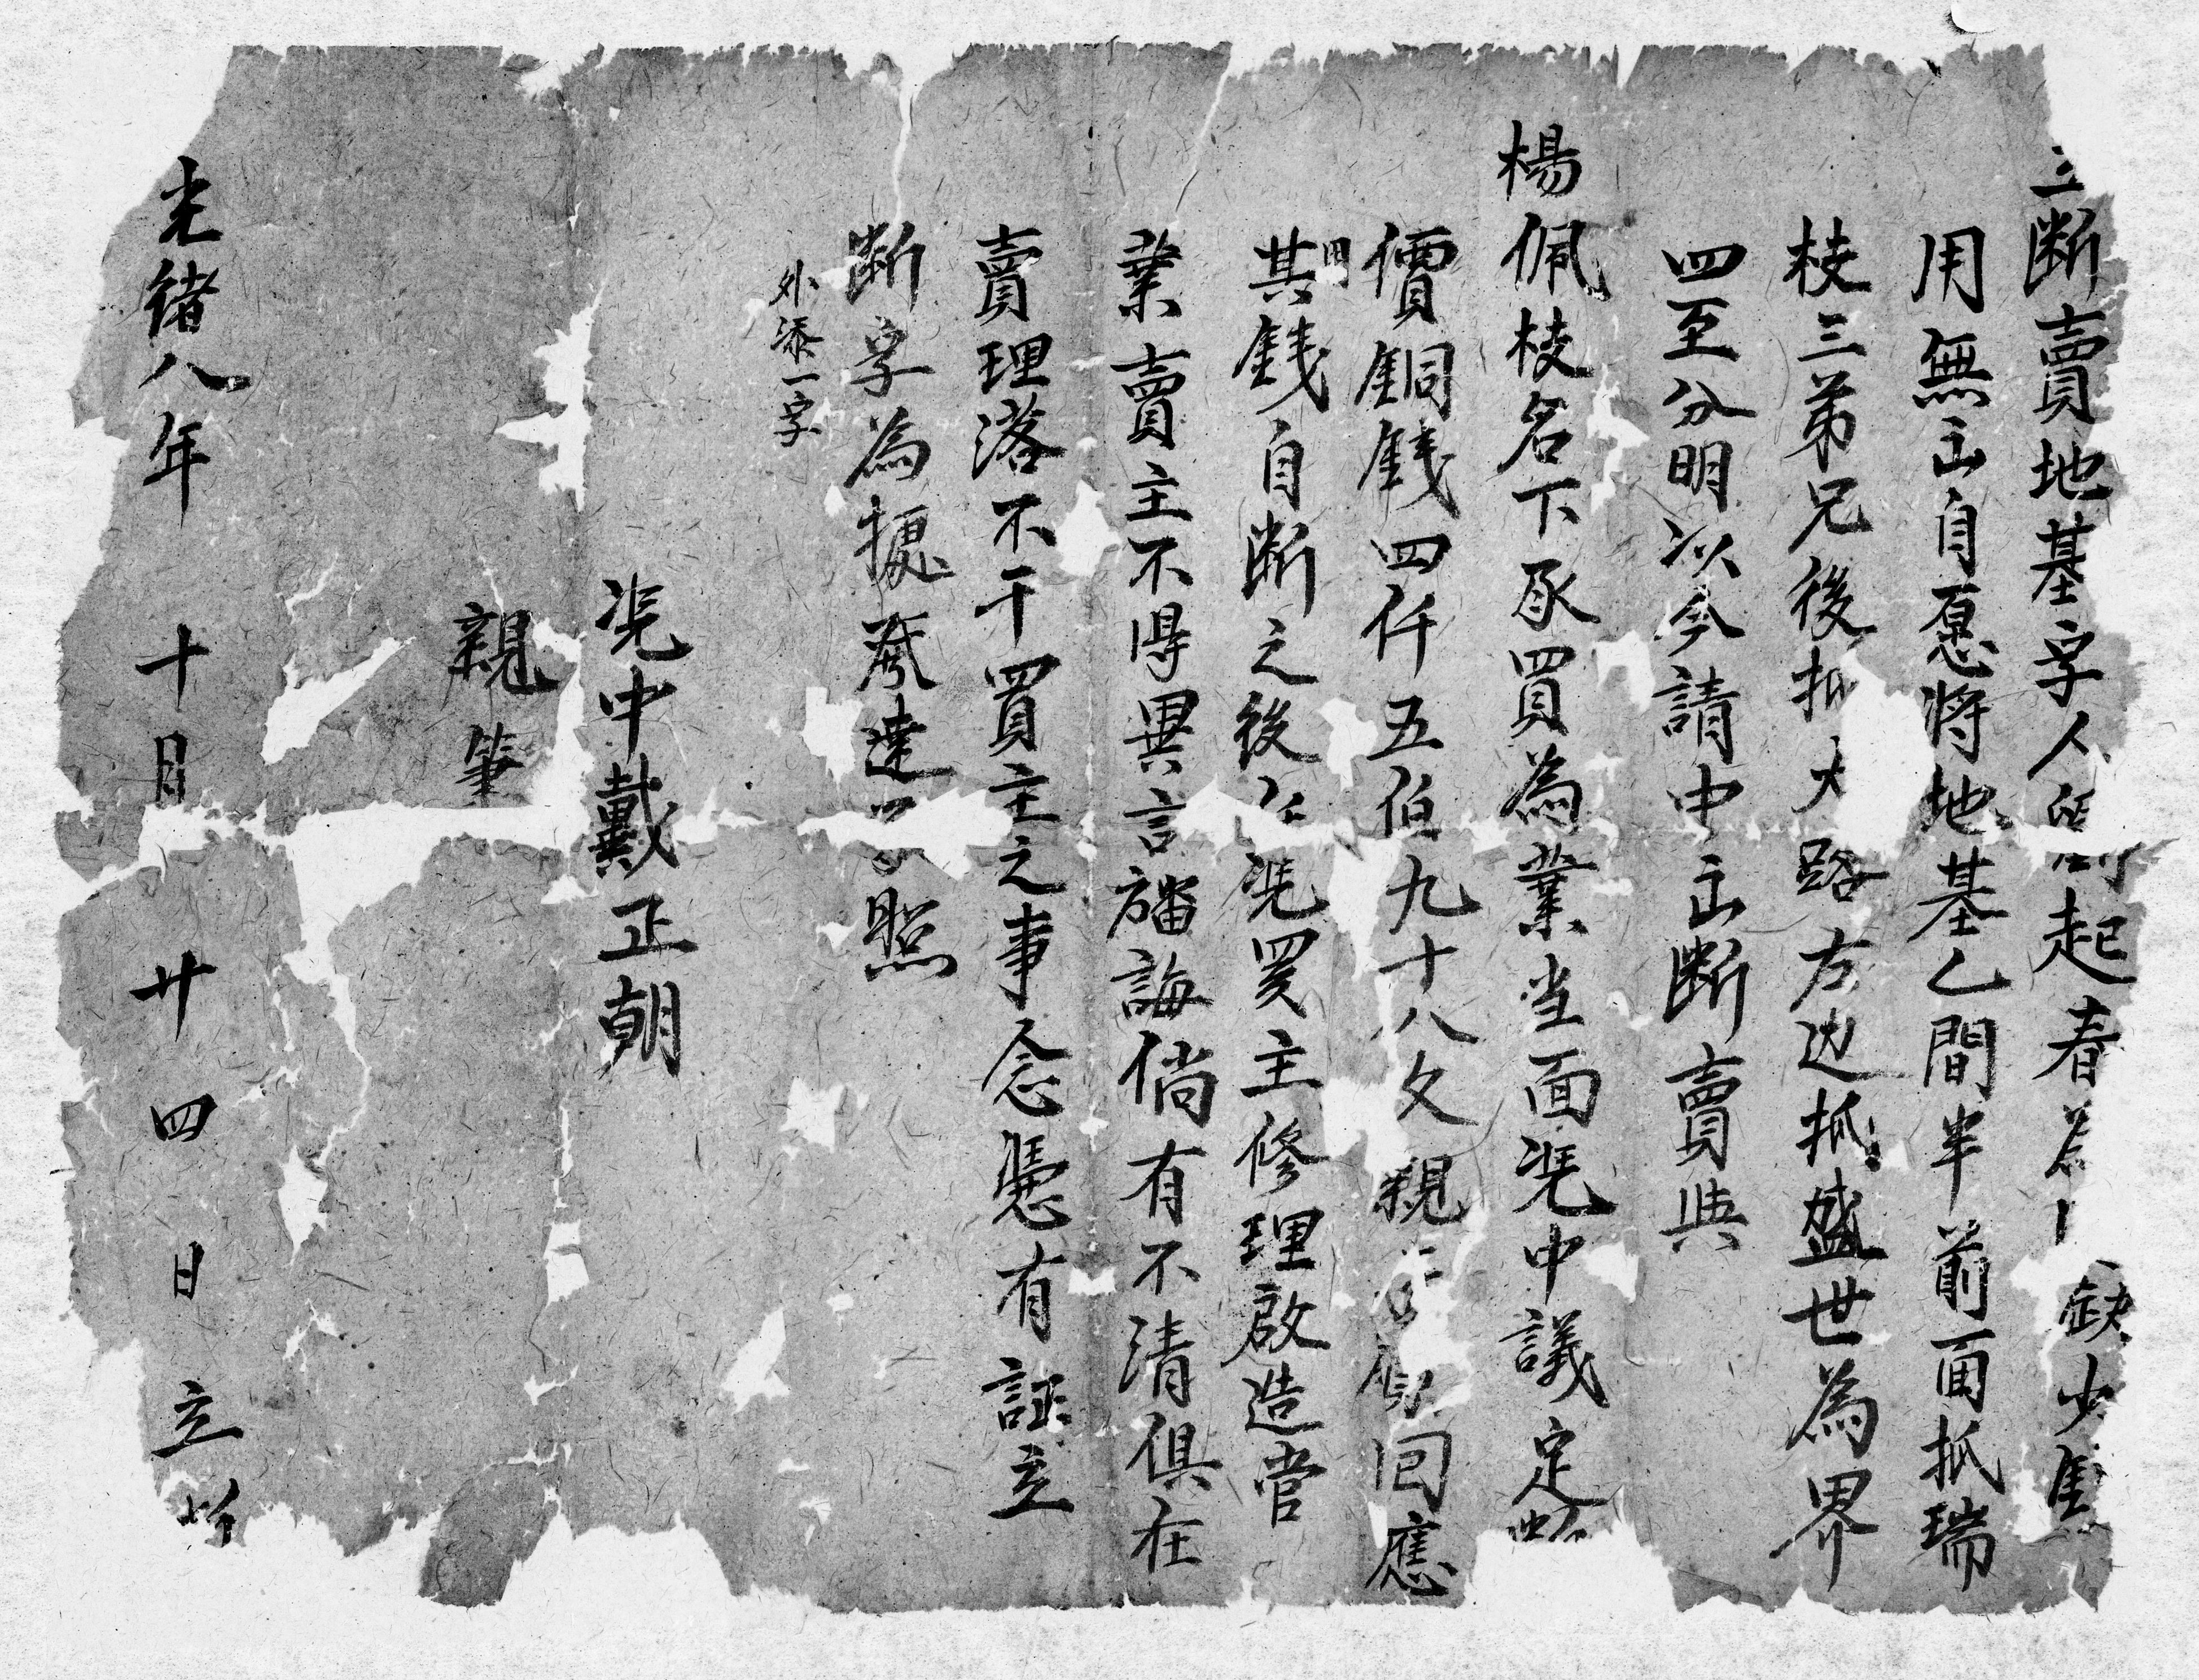 立断賣地基字人起春為缺少
用無出自愿將地基乙間半前面抵瑞
枝三弟兄後抵大路左边抵盛世為界
四至分明以今請中出断賣與
楊佩枝名下承買為業当面凭中議定
價銅錢四仟五伯九十八文親回應用
其錢自断之後任凭買主修理啟造管
業賣主不得異言譒誨倘有不清俱在
賣理落不干買主之事念憑有証立
断字為挭發達照
外添一字
凭中戴正朝
親筆
光緒八年十月廿四日立